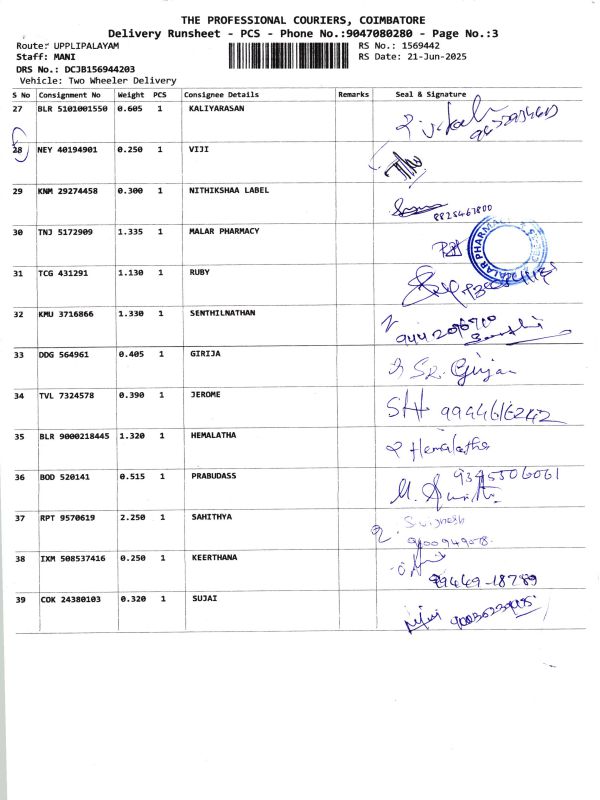 THE PROFESSIONAL COURIERS, COIMBATORE
Delivery Runsheet - PCS - Phone No.:9047080280 - Page No.:3
Route: UPPLIPALAYAM
RS No.: 1569442
Staff: MANI
RS Date: 21-Jun-2025
DRS No.: DCJB156944203
Vehicle: Two Wheeler Delivery
S No Consignment No Weight PCS Consignee Details Remarks Seal & Signature
27 BLR 5101001550 0.605 1 KALIYARASAN
28 NEY 40194901 0.250 1 VIJI
29 KNM 29274458 0.300 1 NITHIKSHAA LABEL
8825467800
30 TNJ 5172909 1.335 1 MALAR PHARMACY
MALAR PHARMACY
31 TCG 431291 1.130 1 RUBY
32 KMU 3716866 1.330 1 SENTHILNATHAN
33 DDG 564961 0.405 1 GIRIJA
34 TVL 7324578 0.390 1 JEROME
9944616242
35 BLR 9000218445 1.320 1 HEMALATHA
Hemalatha
36 BOD 520141 0.515 1 PRABUDASS
9345506061
37 RPT 9570619 2.250 1 SAHITHYA
9600949078
38 IXM 508537416 0.250 1 KEERTHANA
99449-18789
39 COK 24380103 0.320 1 SUJAI